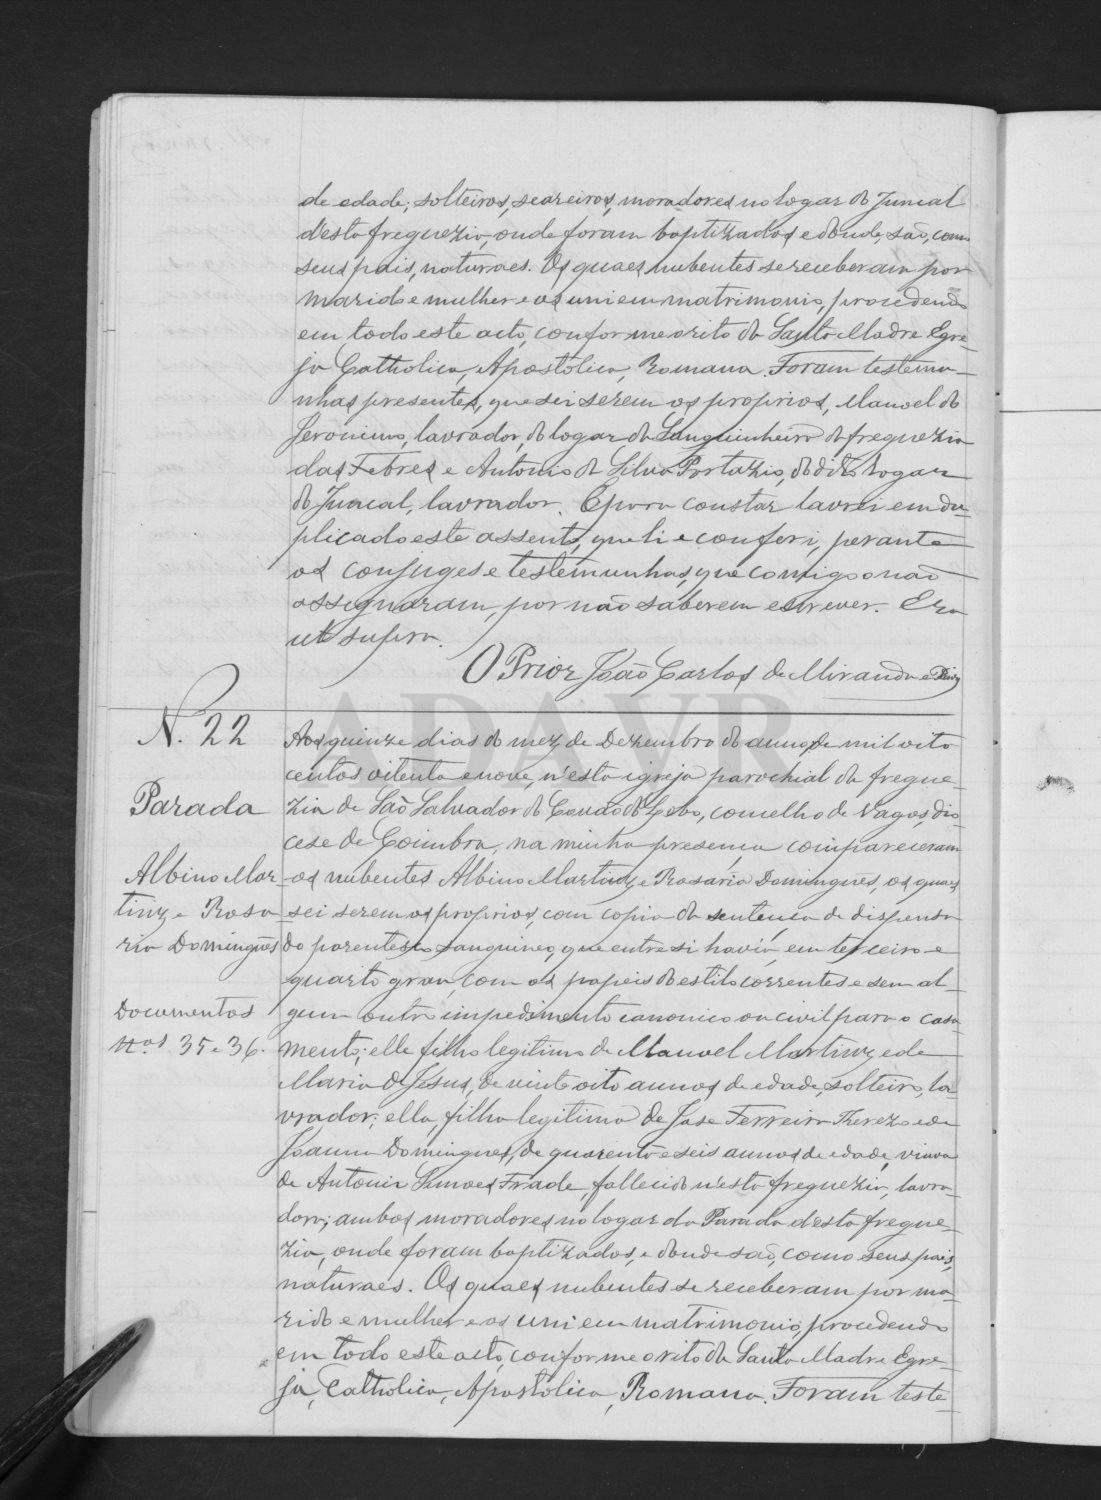 de edade; solteiros, seareiros, moradores no logar do Juncal
d'esta freguezia, onde foram baptizados e donde, são, como
seus pais, naturaes. Os quaes nubentes se receberam por
marido e mulher e os uni em matrimonio, procedendo
em todo este acto, conforme o rito da Santa Madre Egre-
ja Catholica, Apostolica, Romana. Foram testemu-
nhas presentes, que sei serem os proprios, Manoel de
Jeronimo, lavrador, do logar da Sanguinheira da freguezia
das Febres e Antonio da Silva Portazio, do dito logar
do Juncal, lavrador. E para constar lavrei em du-
plicado este assento, que li e conferi, perante
os conjuges e testemunhas, que comigo o não
assignaram, por não saberem escrever. Era
ut supra.
O Prior João Carlos de Miranda e
ADAVR
N. 22
Parada
Albino Mar-
tinz e Rosa-
ria Domingues
Documentos
N.os 35 e 36.
Aos quinze dias do mez de Dezembro do anno de mil oito
centos oitenta e nove, n'esta igreja parochial da fregue-
zia de São Salvador do Covão do Lobo, concelho de Vagos, dio-
cese de Coimbra, na minha presença compareceram
os nubentes Albino Martinz e Rosaria Domingues, os quaes
sei serem os proprios, com copia da sentença de dispensa
do parentesco sanguineo, que entre si havia, em terceiro e
quarto grau, com os papeis do estilo correntes e sem al-
gum outro impedimento canonico ou civil para o casa-
mento; elle filho legitimo de Manoel Martinz e de
Maria de Jesus, de vinte oito annos de edade, solteiro, la-
vrador; ella, filha legitima de José Ferreira Therezo e de
Joanna Domingues, de quarenta e seis annos de edade, viuva
de Antonio Simoes Frade, fallecido n'esta freguezia, lavra-
dora; ambos moradores no logar da Parada d'esta fregue-
zia, onde foram baptizados, e donde são, como seus pais,
naturaes. Os quaes nubentes se receberam por ma-
rido e mulher e os uni em matrimonio, procedendo
em todo este acto, conforme o rito da Santa Madre Egre-
ja, Catholica, Apostolica, Romana. Foram teste-